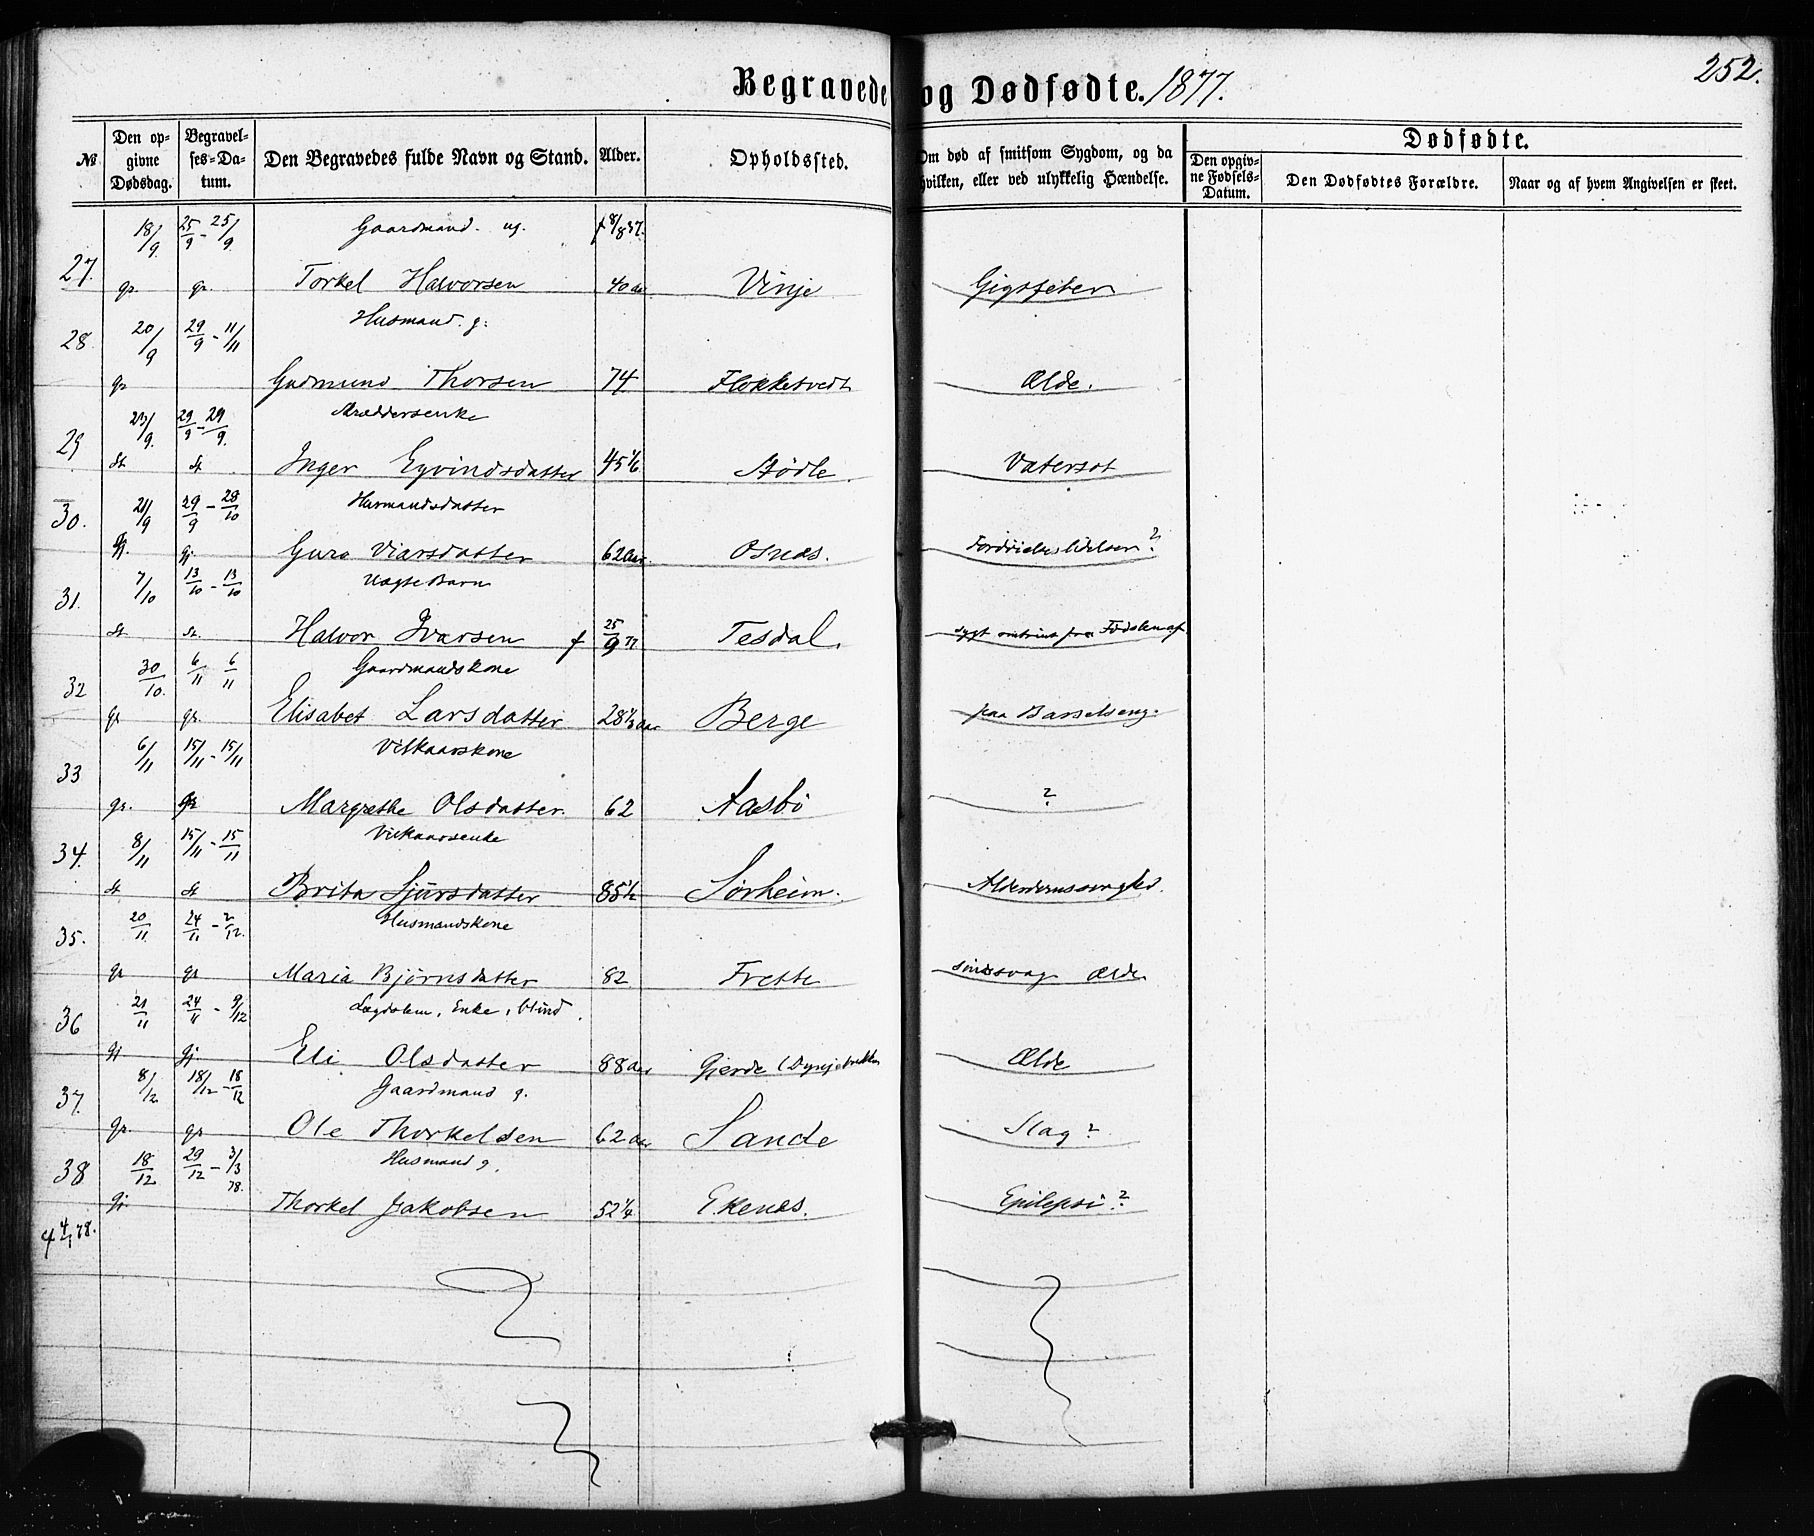 Begravede og Dødfødte. 1877.
252.
No
Den opgivne Dødsdag.
Begravelses-Datum.
Den Begravedes fulde Navn og Stand.
Alder.
Opholdssted.
Om død af smitsom Sygdom, og da hvilken, eller ved ulykkelig Hændelse.
Dødfødte.
Den opgivne Fødsels-Datum.
Den Dødfødtes Forældre.
Naar og af hvem Angivelsen er skeet.
18/9 25/9 - 25/9 Gaardmand. ug. f 8/8 37.
27. gr. gr. Torkel Halvorsen 40 aar Vinje Gigtfeber
20/9 29/9 - 11/11 Husmand. g.
28 gr Gudmund Thorsen 74 Flokketvedt Ælde.
23/9. 29/9 - 29/9.
29 St St Inger Eyvindsdatter 45 1/6 Stødle Vatersot
21/9 29/9 - 28/10 Husmandsdatter
30. gj. gj. Guro Viarsdatter 62 Aar. Osnes. ?
7/10 13/10 - 13/10 Uægte Barn
31. St. St. Halvor Ivarsen f 25/9 77 Tesdal. sygt fra Fødselen af
30/10. 6/11 6/11 Gaardmandskone
32 gr gr. Elisabet Larsdatter 28 1/3 aar Berge paa Barselseng.
6/11 15/11 - 15/11 Vilkaarskone
33 gr. gr Margrethe Olsdatter. 62 Aasbø ?
8/11 15/11 - 15/11 Vilkaarsenke
34. St St Brita Sjursdatter 85 1/2 Sørheim. Alderdomssvaghed.
20/11 24/11 - 2/12. Husmandskone
35. gr gr Maria Bjørnsdatter 82 Frette sindssvag Ælde
21/11 24/11 - 9/12 Lægdslem, Enke, blind.
36 gj gj. Eli Olsdatter 88 Aar Gjerde Ælde
8/12 18/12 - 18/12 Gaardmand g.
37. gr. gr Ole Thorkelsen 62 Aar Sande Slag?
18/12 29/12 - 3/3 78. Husmand g.
38 gj. Thorkel Jakobsen 52 1/4 Ekenes. Epilepsi?
4 4/1 78.